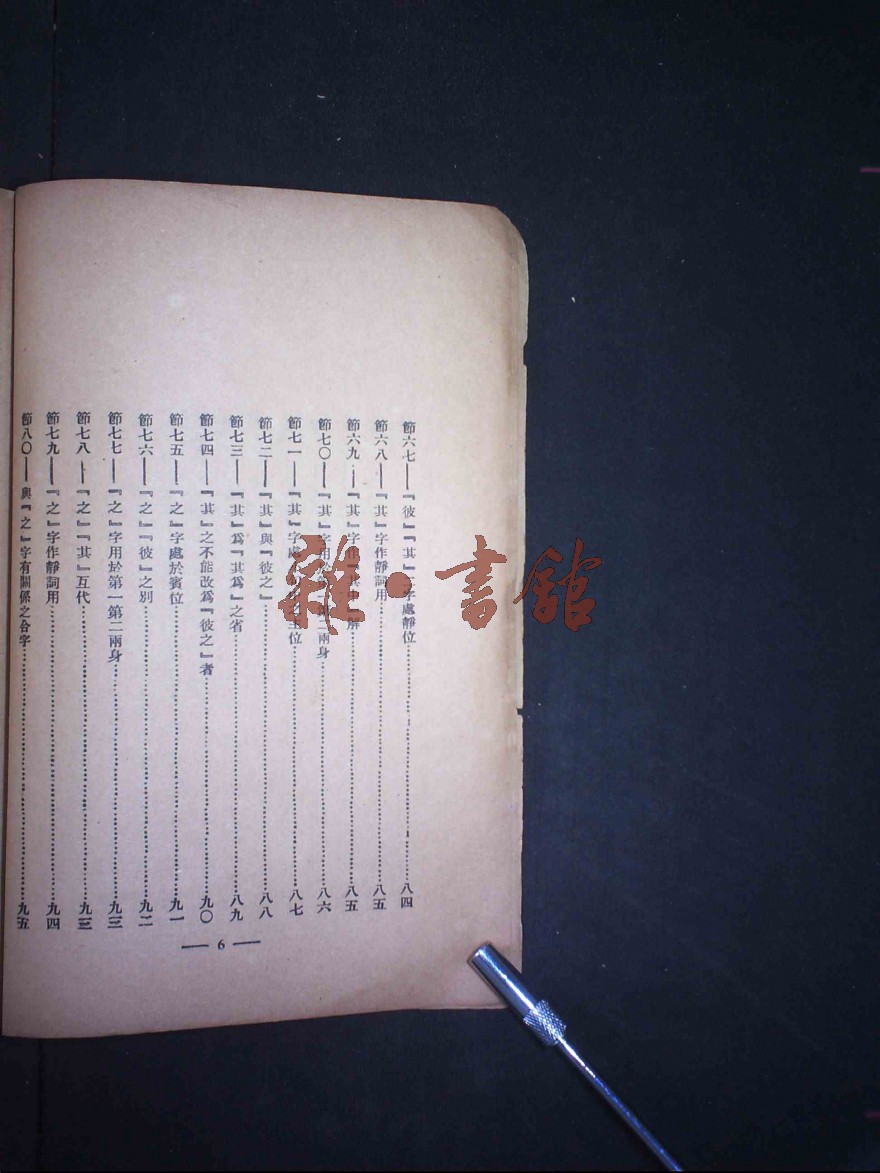 節六七──『彼』『其』字處靜位……八四
節六八──『其』字作靜詞用……八五
節六九──『其』字作 其中 解……八五
節七〇──『其』字用於 第 二兩身……八六
節七一──『其』字處 主位……八七
節七二──『其』與『彼之』……八八
節七三──『其』爲『其爲』之省……八九
節七四──『其』之不能改爲『彼之』者……九〇
節七五──『之』字處於賓位……九一
節七六──『之』『彼』之別……九二
節七七──『之』字用於第一第二兩身……九三
節七八──『之』『其』互代……九三
節七九──『之』字作靜詞用……九四
節八〇──與『之』字有關係之合字……九五
── 6 ──
雜·書館